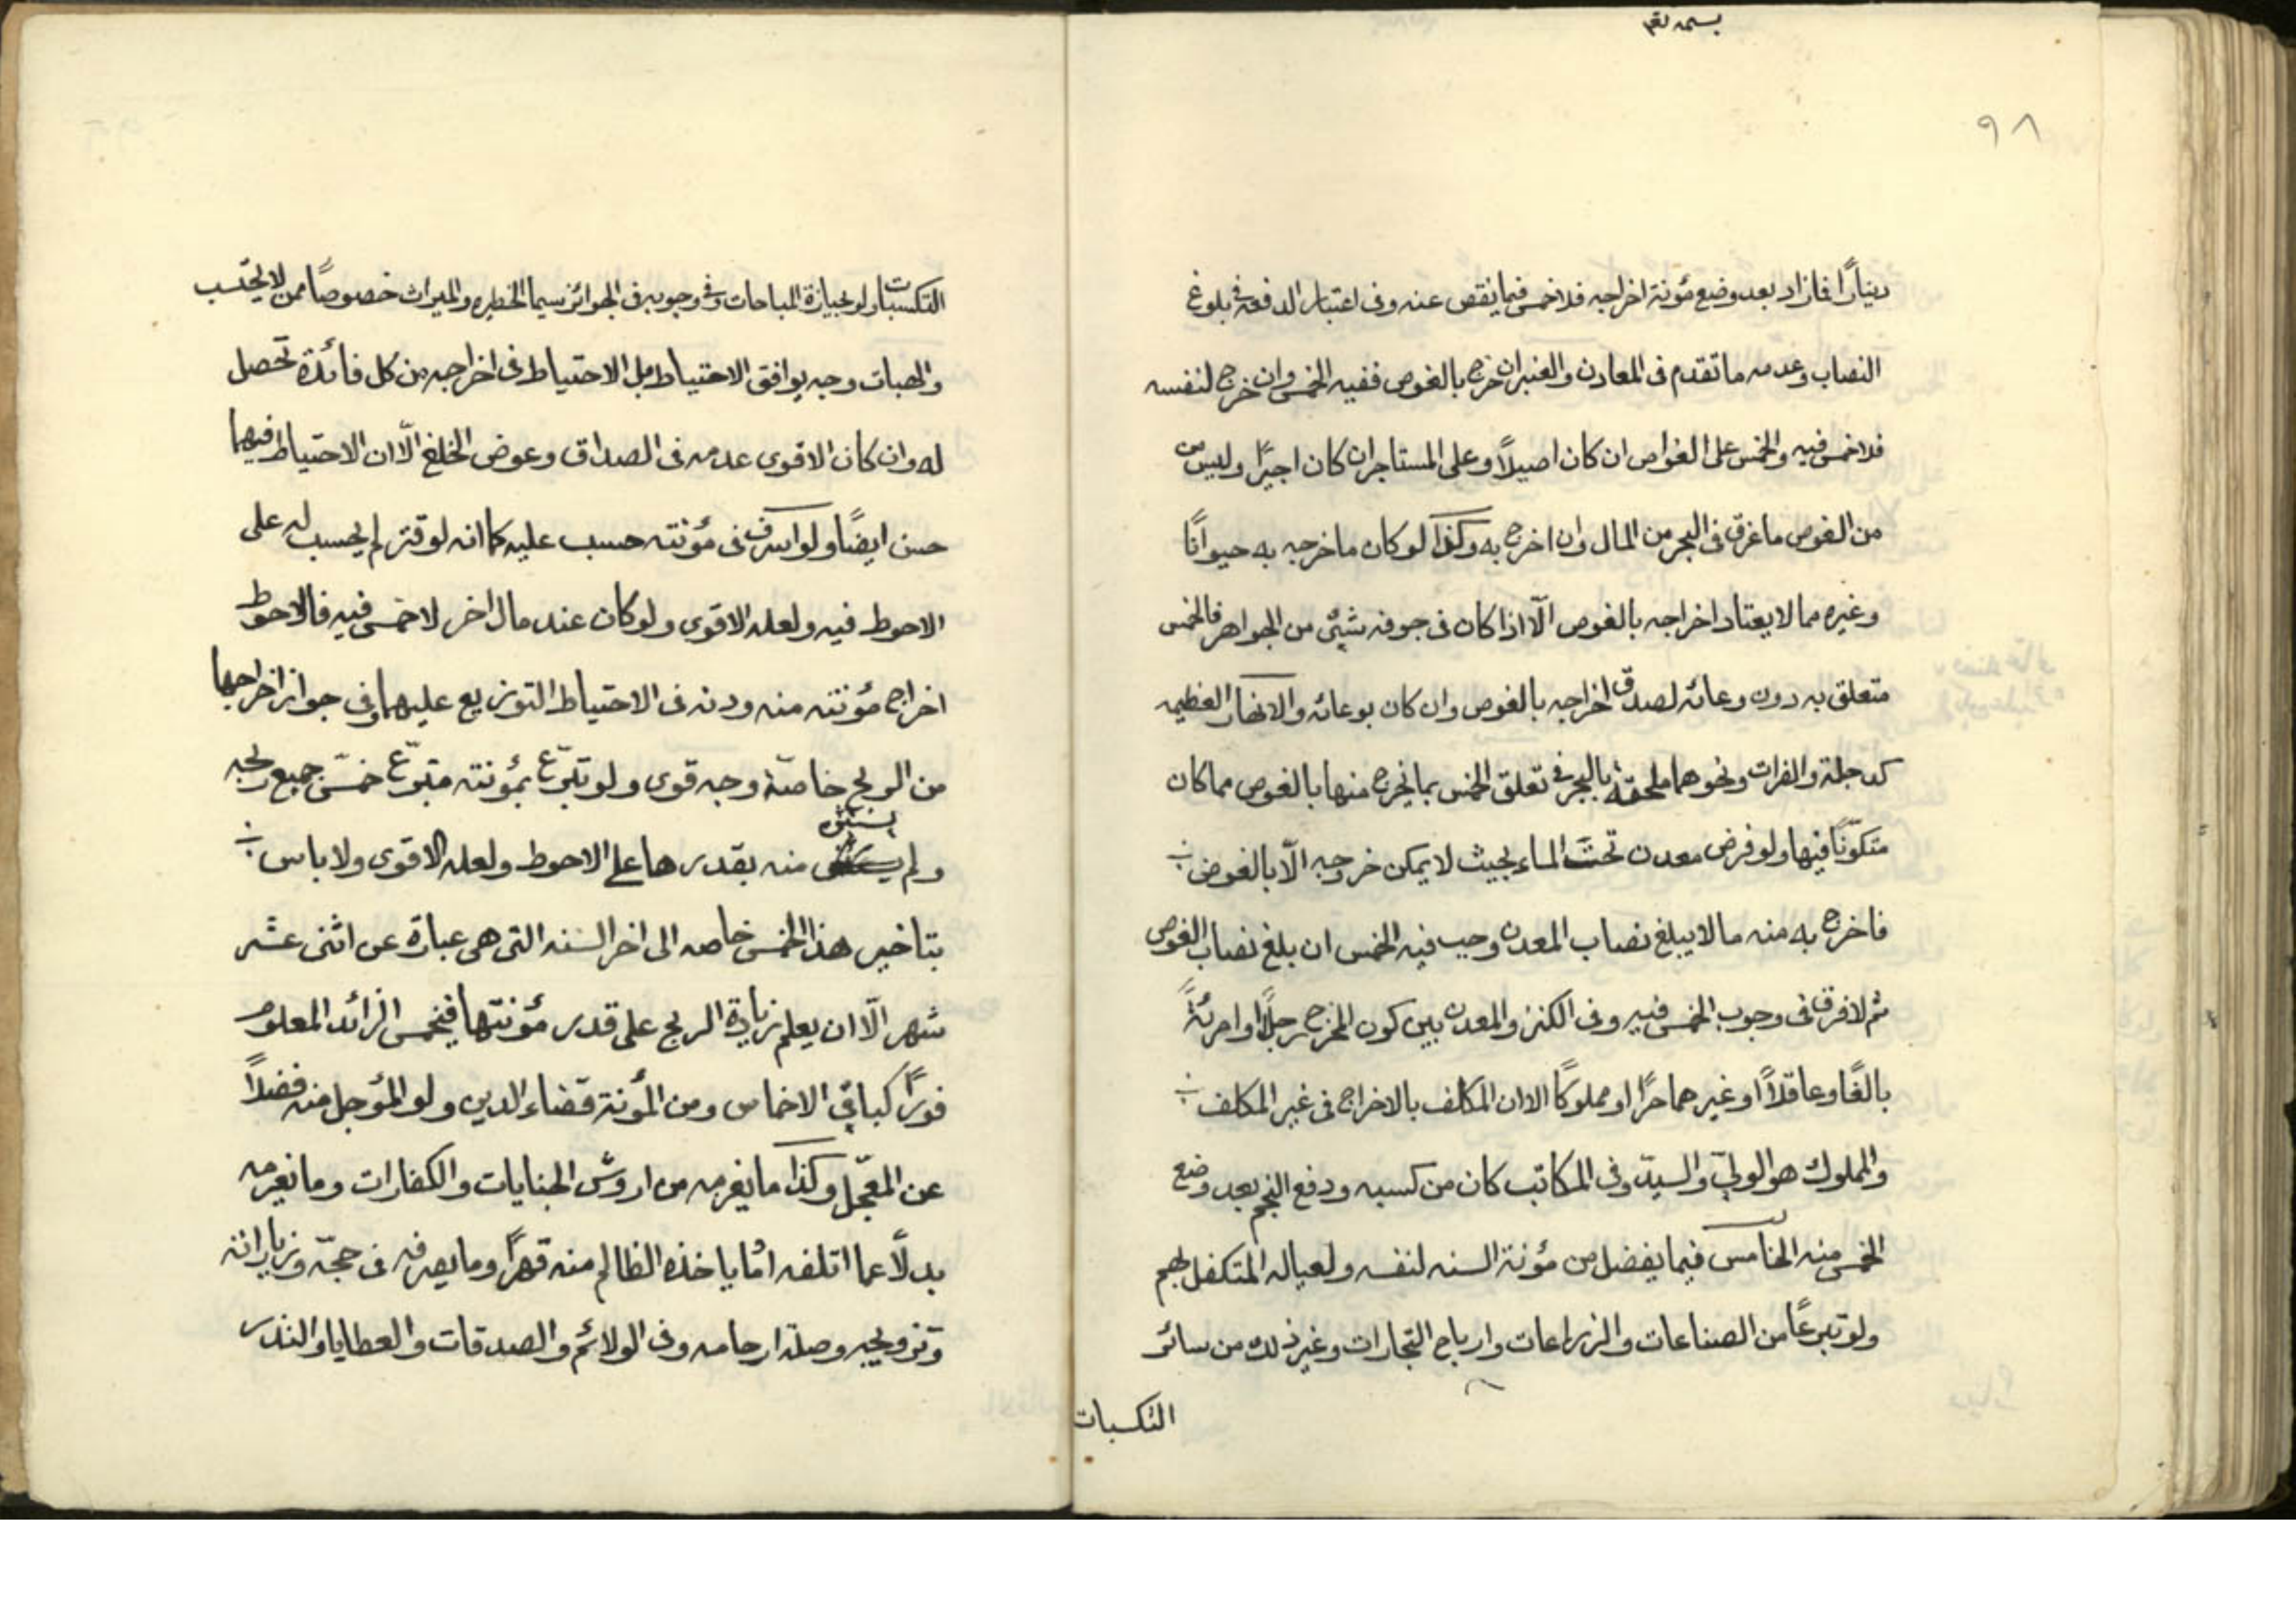 بسمه تعم
٩٨
دينارًا فمازاد بعد وضع مؤنة اخراجه فلا خمس فيما ينقص عنه وفى اعتبار الدفعة فى بلوغ
النصاب وعدمه ما تقدم فى المعادن والعنبر ان خرج بالغوص ففيه الخمس وان خرج لنفسه
فلا خمس فيه والخمس على الغواص ان كان اصيلاً وعلى المستاجر ان كان اجيرًا وليس من
من الغوص ما غرق فى البحر من المال وان اخرج به وكذا لو كان ما خرجه به حيوانًا
وغيره مما لا يعتاد اخراجه بالغوص الّا اذا كان فى جوفه شيئ من الجواهر فالخمس
متعلق به دون وعائه لصدق اخراجه بالغوص وان كان بوعائه والانهار العظيمه
كدجلة والفرات ونحوهما ملحقة بالبحر فى تعلق الخمس بما يخرج منها بالغوص مما كان
متكوّنًا فيها ولو فرض معدن تحت الماء بحيث لا يمكن خروجه الّا بالغوص
فاخرج به منه مالا يبلغ نصاب المعدن وجب فيه الخمس ان بلغ نصاب الغوص
ثم لا فرق فى وجوب الخمس فيه وفى الكنز والمعدن بين كون المخرج رجلًا او امرئةً
بالغًا وعاقلاً او غيرهما حرًا او مملوكًا الا ان المكلف بالاخراج فى غير المكلف
والمملوك هو الولىّ والسيّد وفى المكاتب كان من كسبه ودفع النجم بعد وضع
الخمس منه الخامس فيما يفضل من مؤنة السنه لنفسه ولعياله المتكفل بهم
ولو تبرعًا من الصناعات والزراعات وارباح التجارات وغير ذلك من سائر
التكسبات
التكسبات ولو بحيازة المباحات وفى وجوبه فى الجوائز سيما الخطيره والميراث خصوصًا ممن لا يحتسب
والهبات وجه يوافق الاحتياط بل الاحتياط فى اخراجه من كل فائدة تحصل
له وان كان الاقوى عدمه فى الصداق وعوض الخلع الّا ان الاحتياط فيهما
حسن ايضًا ولو اسرف فى مؤنته حسب عليه كما انه لو قتر لم يحسب له على
الاحوط فيه ولعله الاقوى ولو كان عنده مال اخر لا خمس فيه فالاحوط
اخراج مؤنته منه ودنه فى الاحتياط التوزيع عليهما وفى جواز اخراجها
من الربح خاصة وجه قوى ولو تبرّع بمؤنته متبرّع خمّس جميع ربحه
ولم يستثن منه بقدرها على الاحوط ولعله الاقوى ولا باس
بتاخير هذا الخمس خاصه الى اخر السنه التى هى عبارة عن اثنى عشر
شهر الّا ان يعلم زيادة الربح على قدر مؤنتها فيخمس الزائد المعلوم
فورًا كباقى الاخماس ومن المؤنة قضاء الدين ولو المؤجل منه فضلاً
عن المعجّل وكذا ما يغرمه من اروش الجنايات والكفارات وما يغرمه
بدلاً عما اتلفه او ما ياخذه الظالم منه قهرًا وما يصرفه فى حجّه وزياراته
وتزويجه وصلة ارحامه وفى الولائم والصدقات والعطايا والنذر